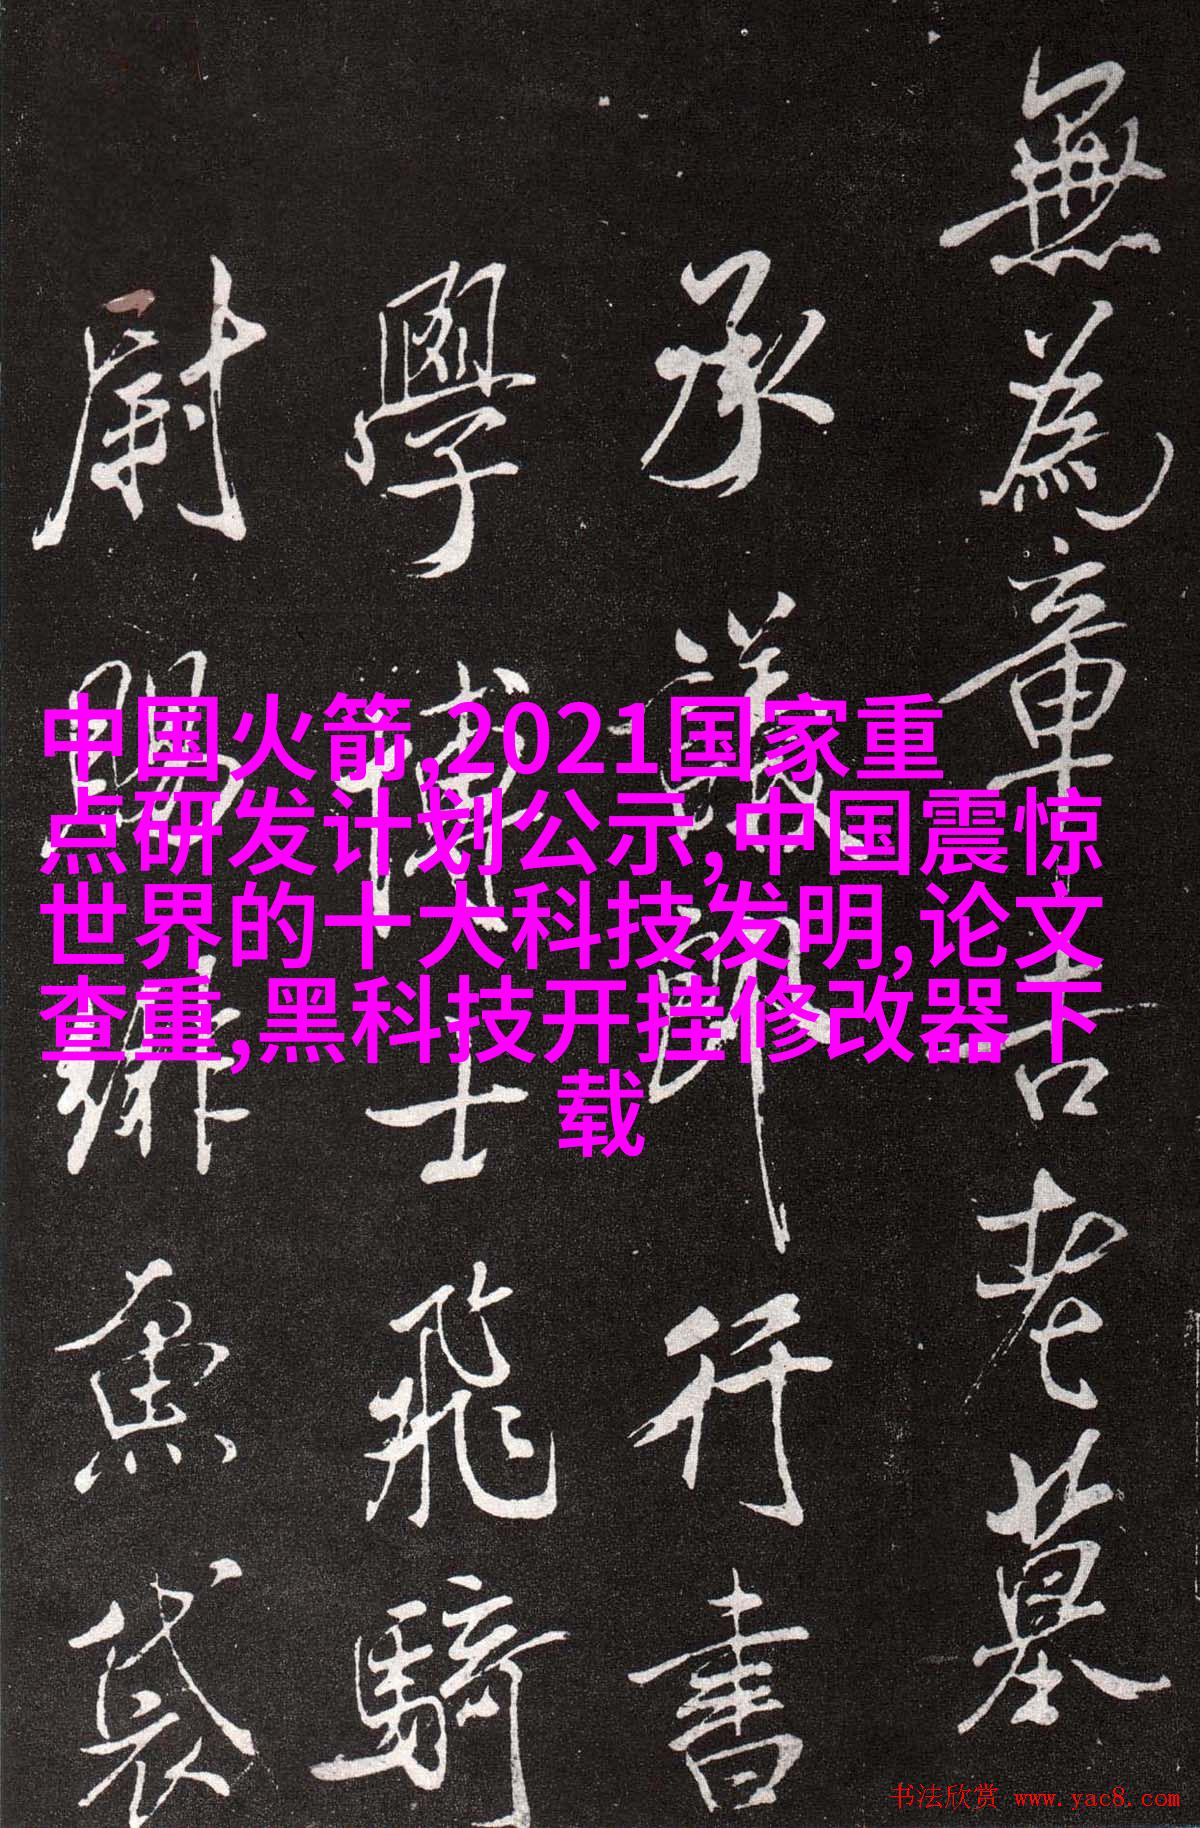 無為章吉老墓
承議郎行書
學博士飛騎
尉賜緋魚袋
中国火箭,2021国家重
点研发计划公示,中国震惊
世界的十大科技发明,论文
查重,黑科技开挂修改器下
载
书法欣赏 www.yac8.com